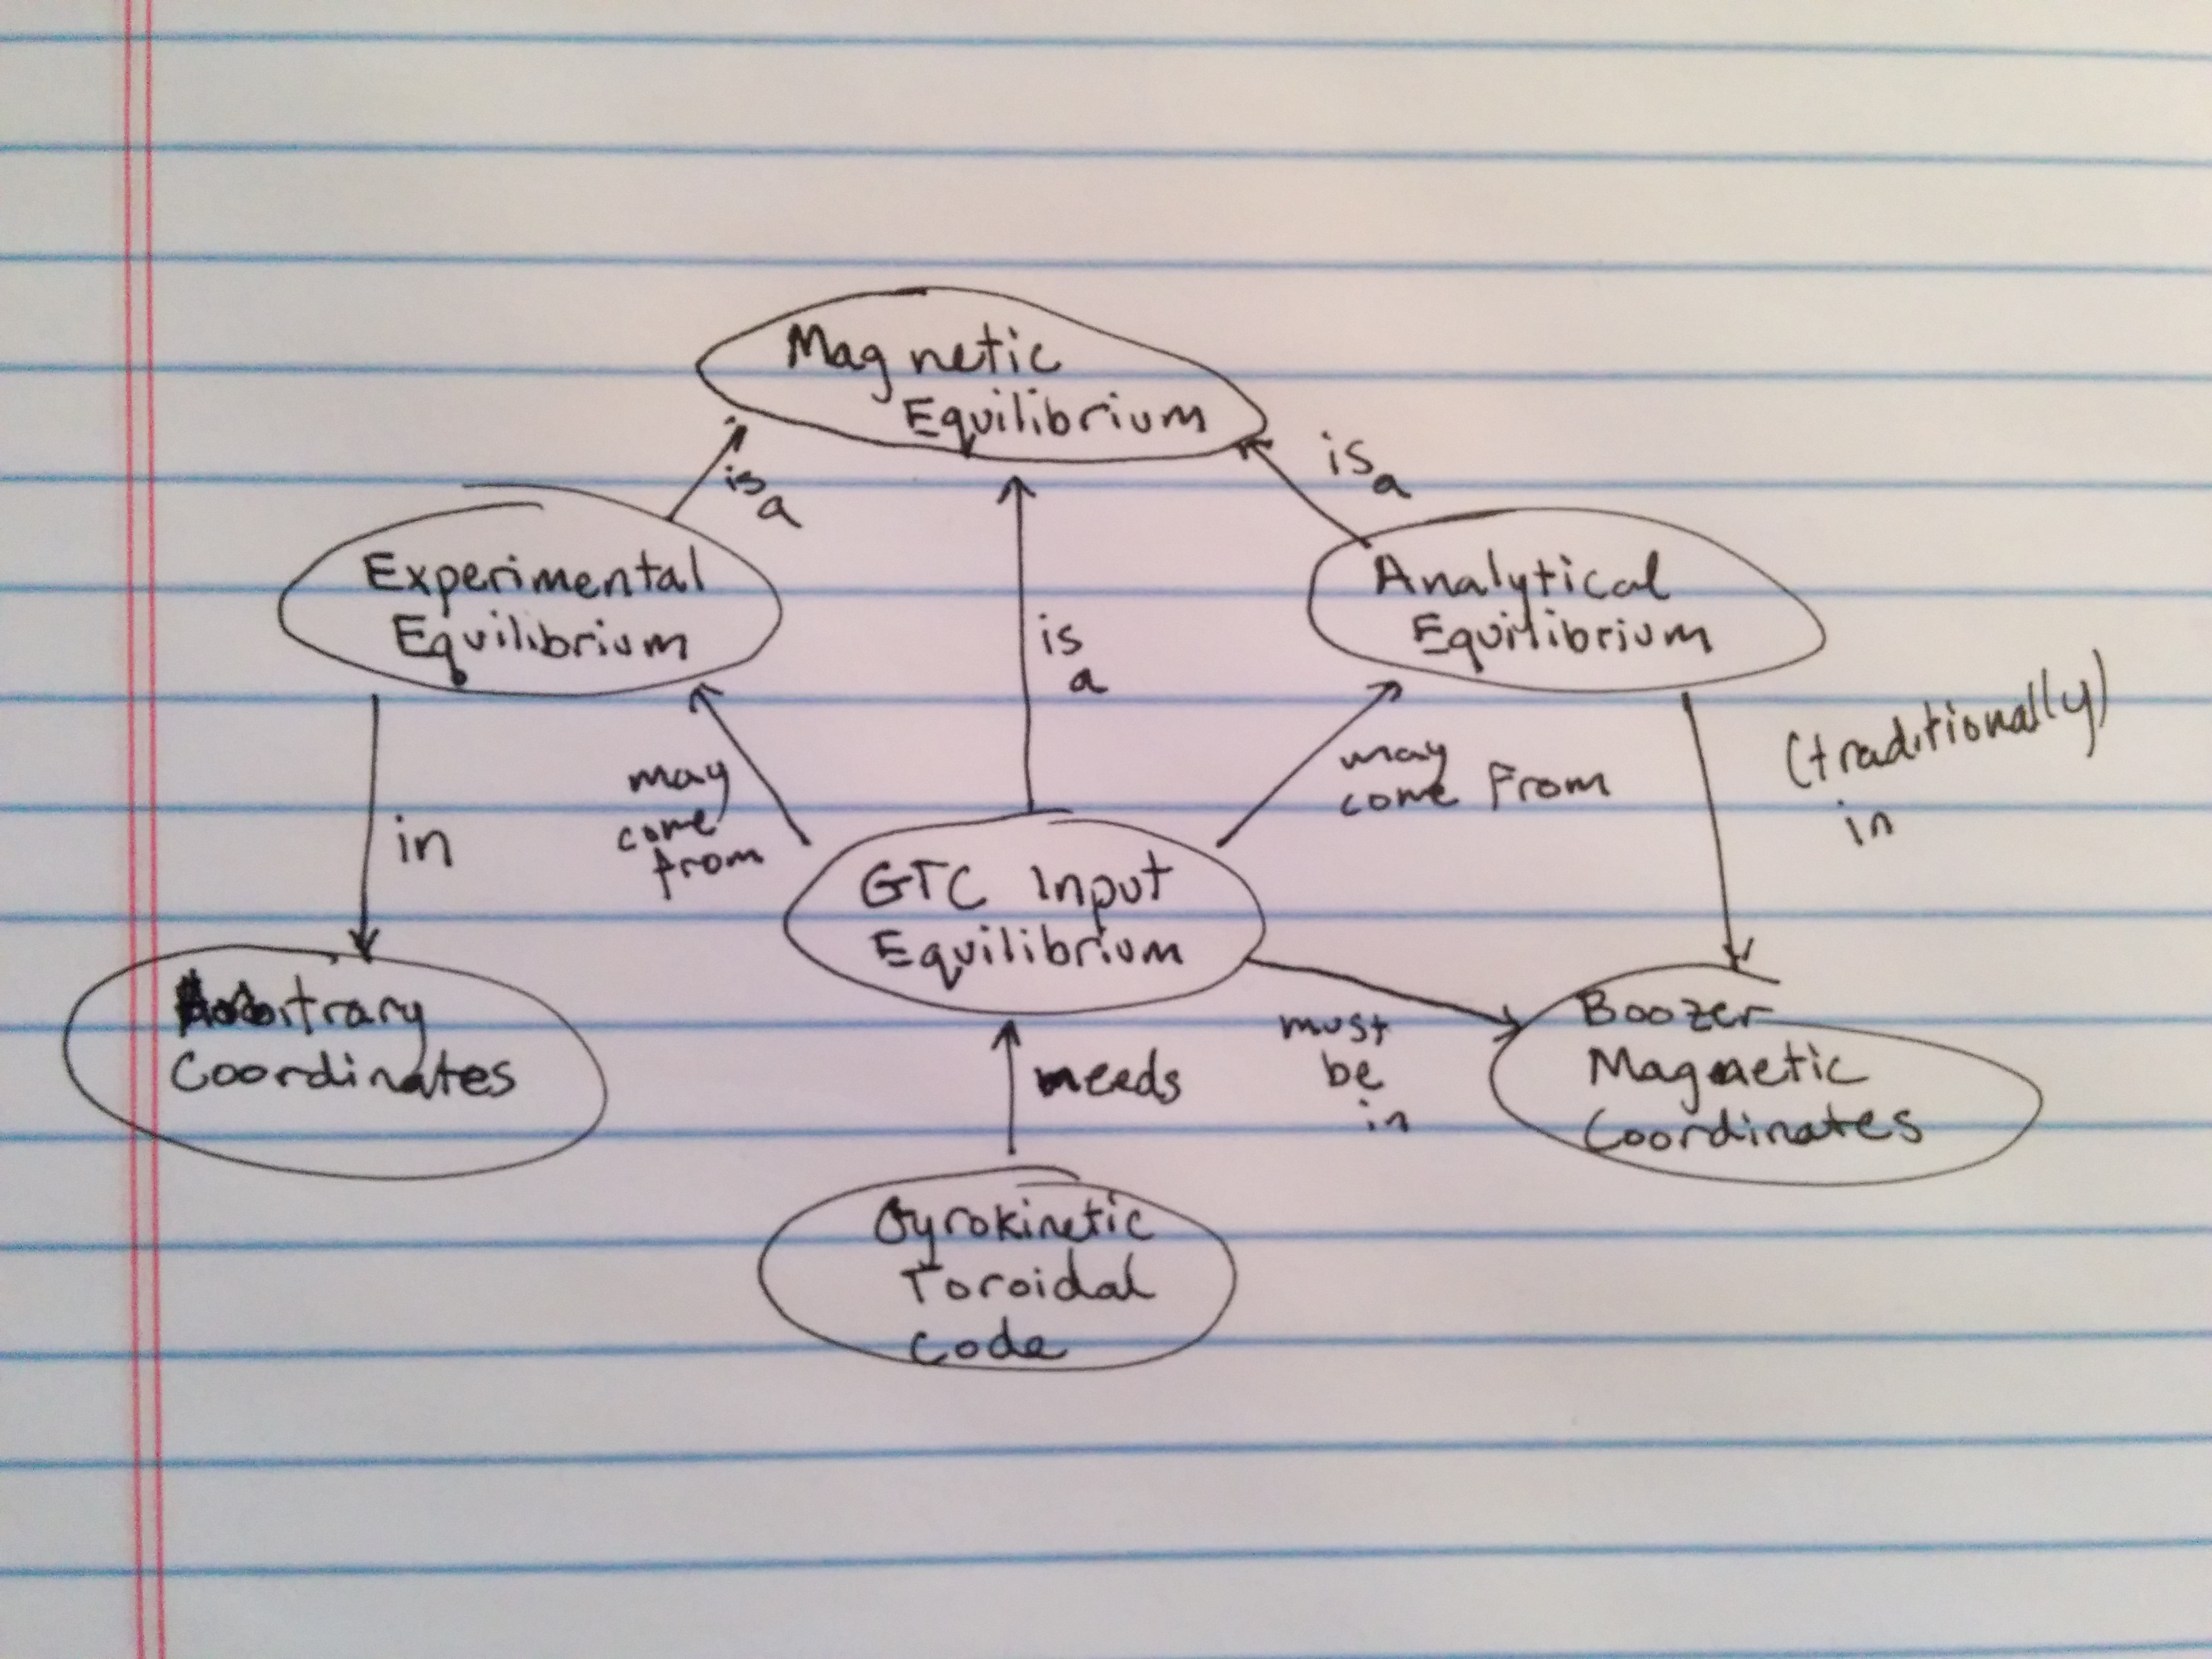 Magnetic
Equilibrium
is
a
is
a
Experimental
Equilibrium
Analytical
Equilibrium
is
a
may
come
from
may
come From
(traditionally)
in
in
GTC Input
Equilibrium
Arbitrary
Coordinates
needs
must
be
in
Boozer
Magnetic
Coordinates
Gyrokinetic
Toroidal
Code